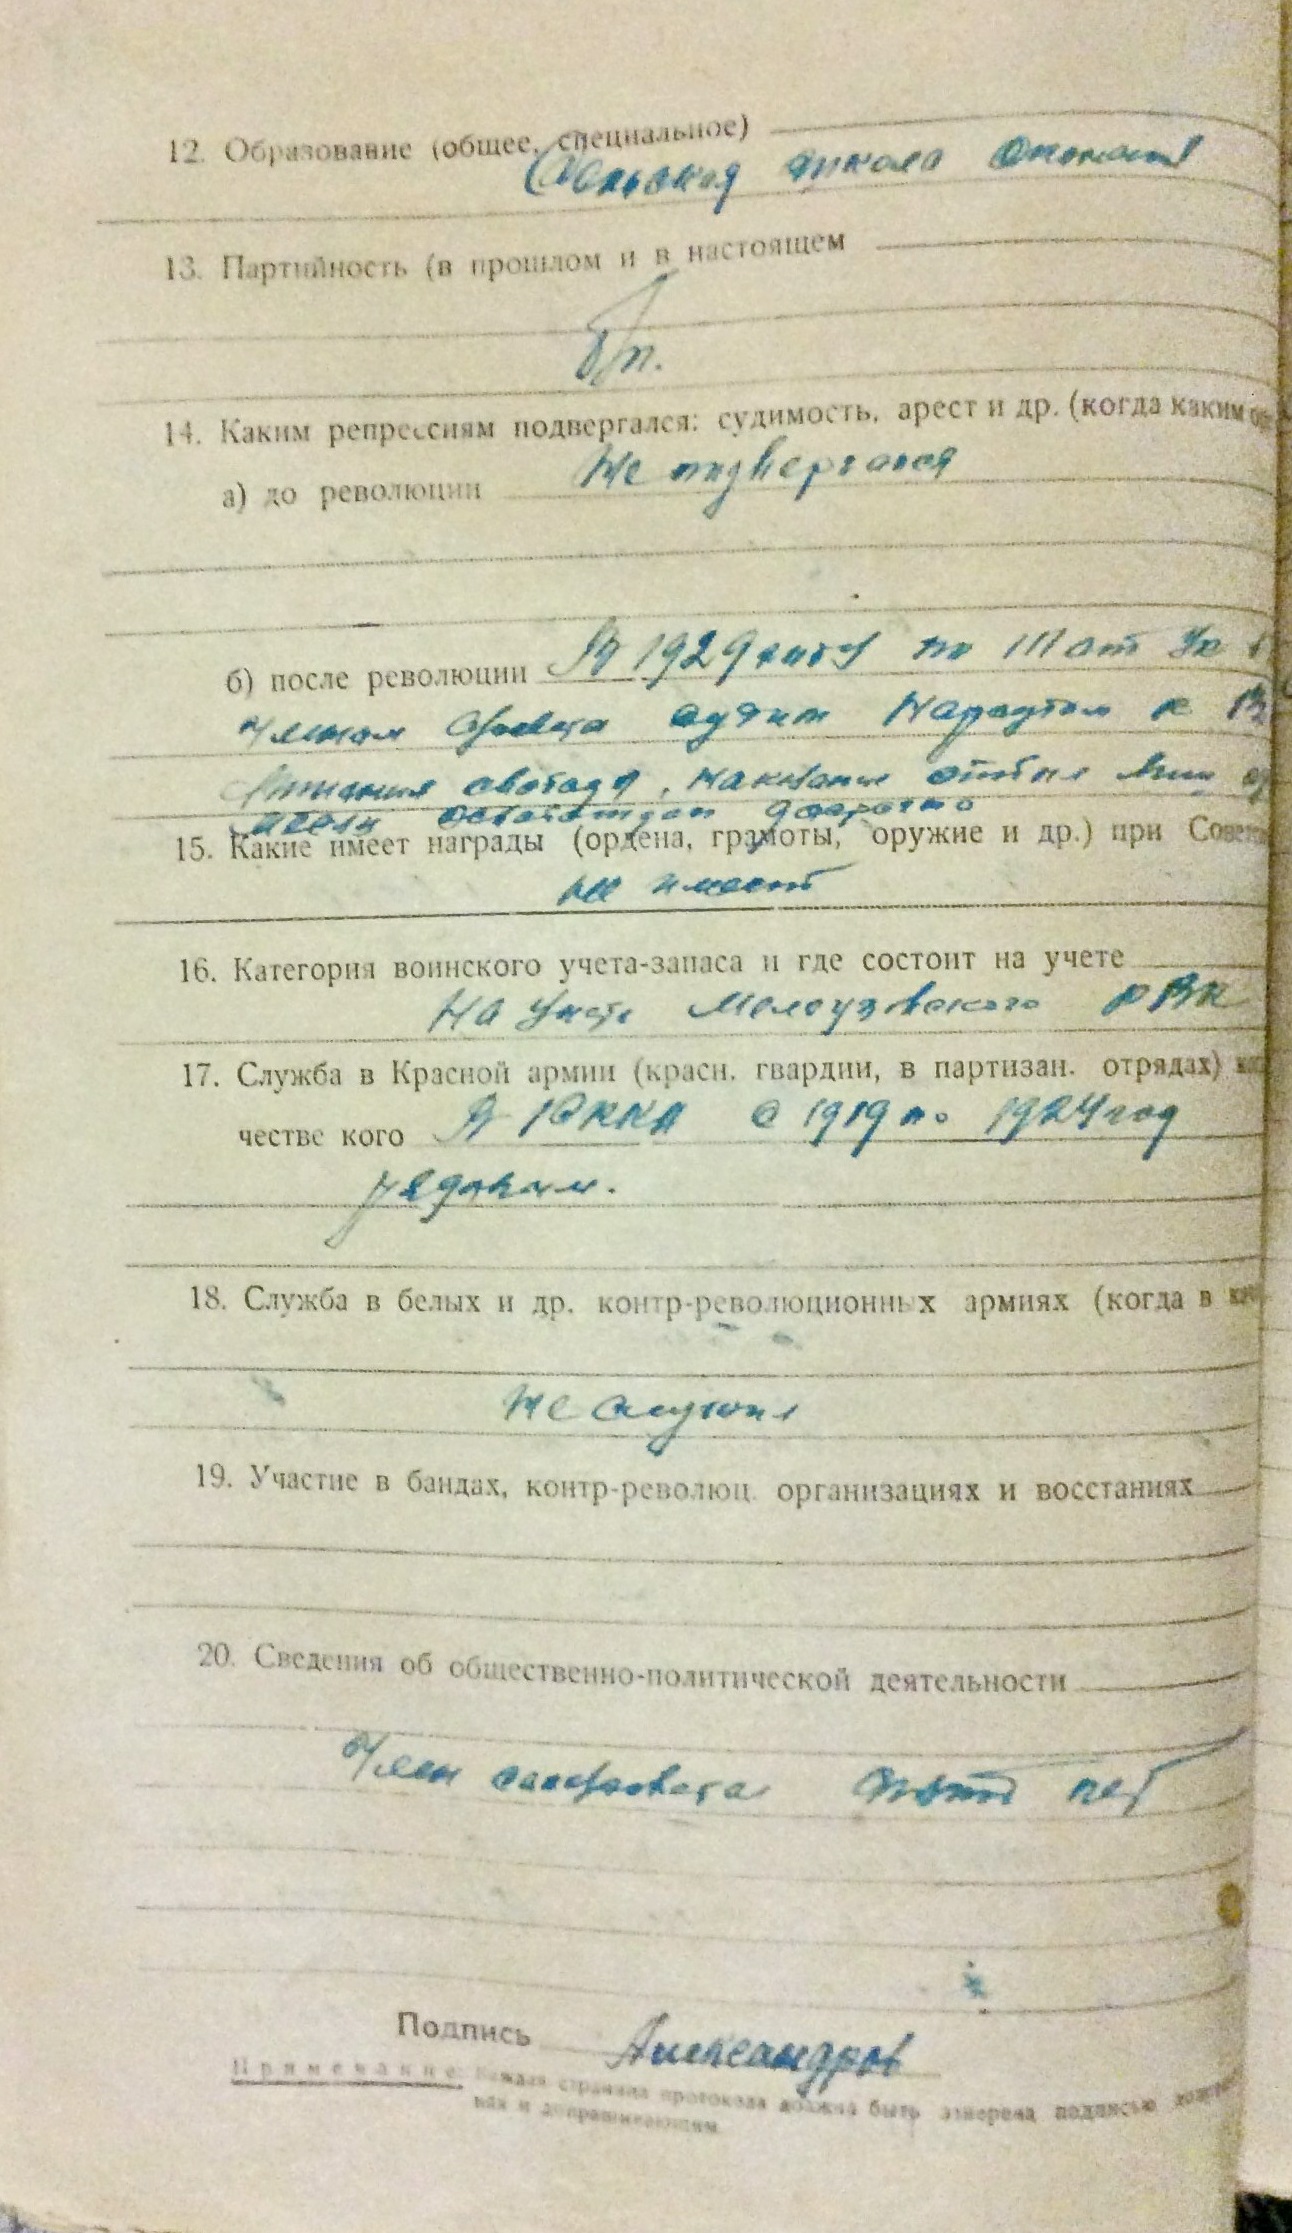 12. Образование (общее, специальное)
Сельская школа
13. Партийность (в прошлом и в настоящем
б/п.
14. Каким репрессиям подвергался: судимость, арест и др. (когда каким
Не подвергался
а) до революции
б) после революции В 1929 году по 111 ст УК
Членом суда судим Нарсудом к
лишения свободы, наказание отбыл
освобожден досрочно
15. Какие имеет награды (ордена, грамоты, оружие и др.) при
не имеет
16. Категория воинского учета-запаса и где состоит на учете
На учете Мелеузовского РВК
17. Служба в Красной армии (красн. гвардии, в партизан. отрядах)
честве кого В РККА с 1919 по 1924 год
рядовым.
18. Служба в белых и др. контр-революционных армиях (когда в
Не служил
19. Участие в бандах, контр-революц. организациях и восстаниях
20. Сведения об общественно-политической деятельности
Член лет
Подпись Александров
Примечание: Каждая страница протокола должна быть заверена подписью
и допрашивающим